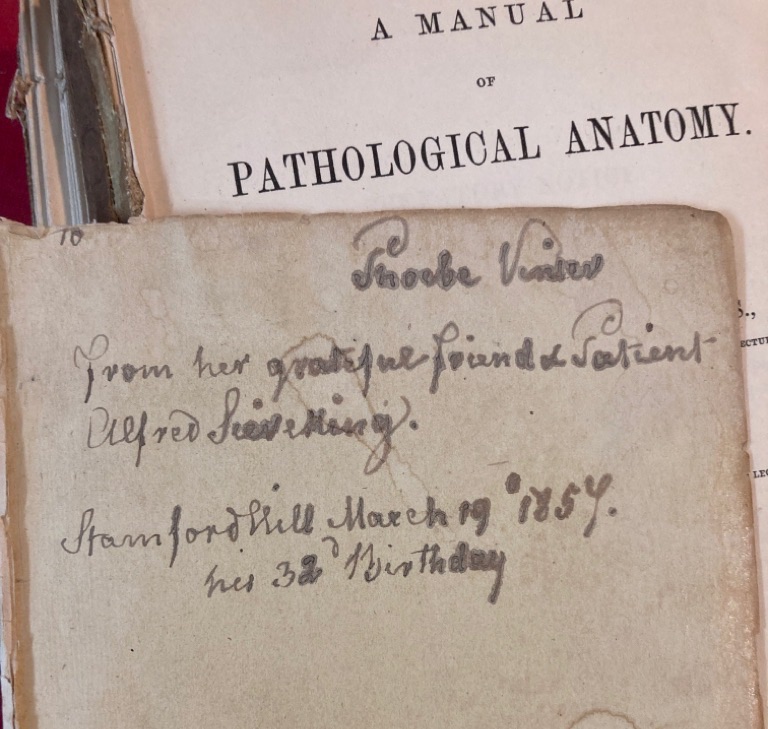 A MANUAL
OF
PATHOLOGICAL ANATOMY.
S.,
To
Phoebe
From her grateful friend & Patient
Alfred Sieveking.
Stamford Hill March 19 1857.
her 32d Birthday